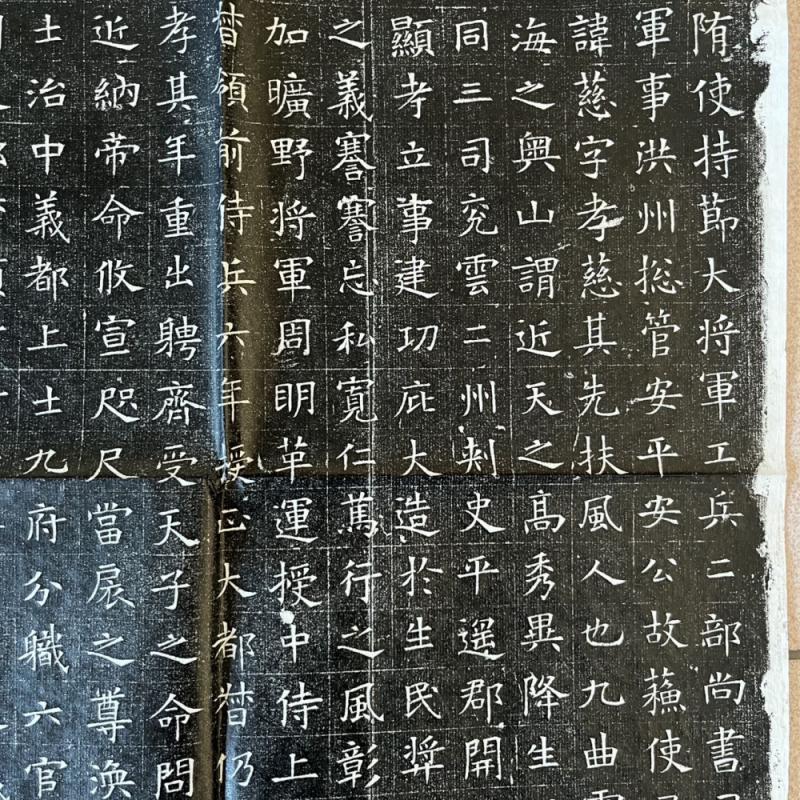 隋使持節大将軍工兵二部尚書
軍事洪州捴管安平安公故蘓使
諱慈字孝慈其先扶風人也九曲
海之奥山謂近天之高秀異降生
同三司兖雲二州刾史平遥郡開
顯考立事建功庇大造於生民奨
之義謇謇忘私寛仁篤行之風彰
加曠野将軍周明革運授中侍上
督領前侍兵六年授正大都督仍
孝其年重出聘齊受天子之命問
近納帝命攸宣咫尺當扆之尊渙
士治中義都上士九府分職六官